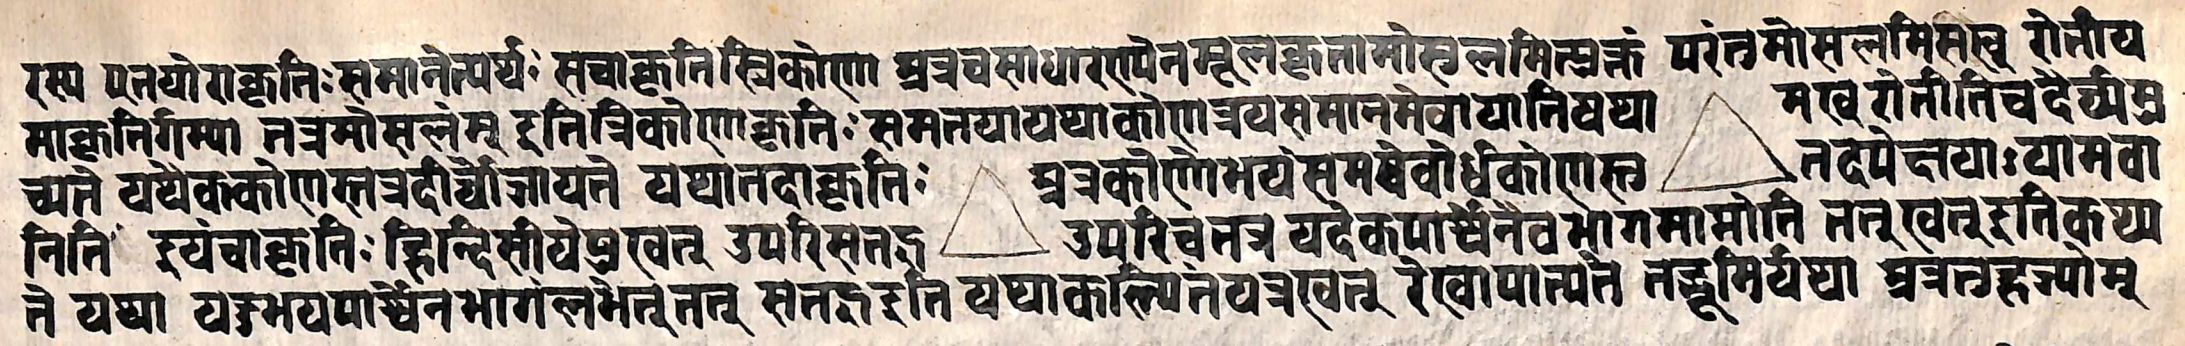 रस्य एतयोराकृतिः समानेत्यर्थः सचाकृतिस्त्रिकोणा अत्रचसाधारण्येनमूलकृतामोसलमित्युक्तं परंतुमोसलमिसखु रोतीय
माकृतिर्गम्या तत्रमोसलंमू इतित्रिकोणाकृतिः समतयायथाकोणत्रयसमानमेवायातियथा मखु रोतीतिचदैर्घ्यमु
च्यते यथैककोणस्तत्रदीर्घोजायते यथातदाकृतिः अत्रकोणोभयंसममेवोर्ध्वकोणस्तु तदपेक्षयाः यामवा
निति इयंचाकृतिः हिन्दिसीयेअखतु उपरिसतह उपरिचतत्र यदेकपार्श्वेनैवभागमाप्नोति तत् खतूइतिकथ्य
ते यथा यदुभयपार्श्वेनभागंलभेत् तत् सतहइति यथाकल्पितंयत्रखतू रेखापात्यते तद्भूमिर्यथा अत्रतह्रज्योमू